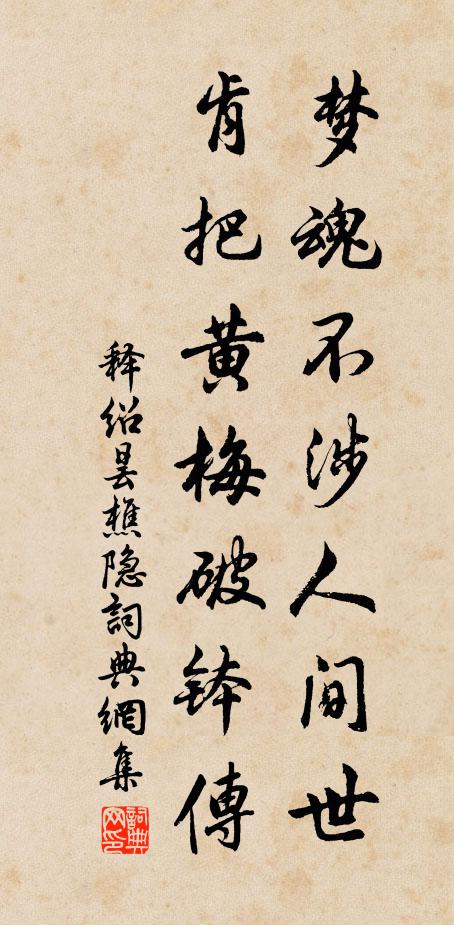 梦魂不涉人间世
肯把黄梅破钵傳
释绍昙樵隐詞典網集
詞典网印